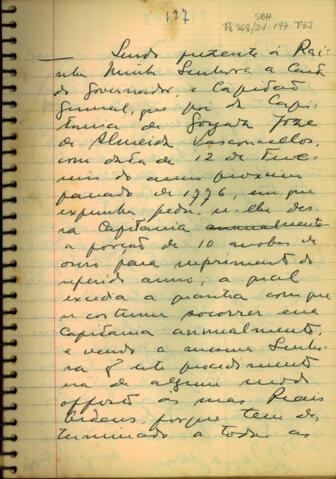 197
SBH
Pi 568/24: 197 P32
— Sendo presente à Rai-
nha Minha Senhora a Carta
do Governador, e Capitão
General, que foi da Capi-
tania de Goyaz Joze
de Almeida Vasconcellos,
com data de 12 de Feve-
reiro do anno proximo
passado de 1776, em que
expunha pedir-se lhe des-
sa Capitania annualmente
a porção de 10 arrobas de
ouro para suprimento do
referido anno; a qual
excedia a quantia com que
se costuma socorrer essa
Capitania annualmente,
e vendo a mesma Senho-
ra q este procedimento
era de algum modo
opposto ás suas Reais
Ordens, porque tem de-
terminado a todos os